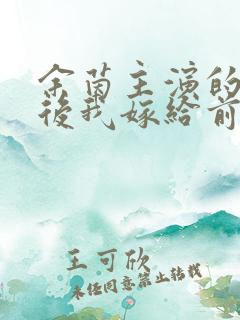 余茵主演的
後我嫁給前
王可欣
未经同意禁止转载